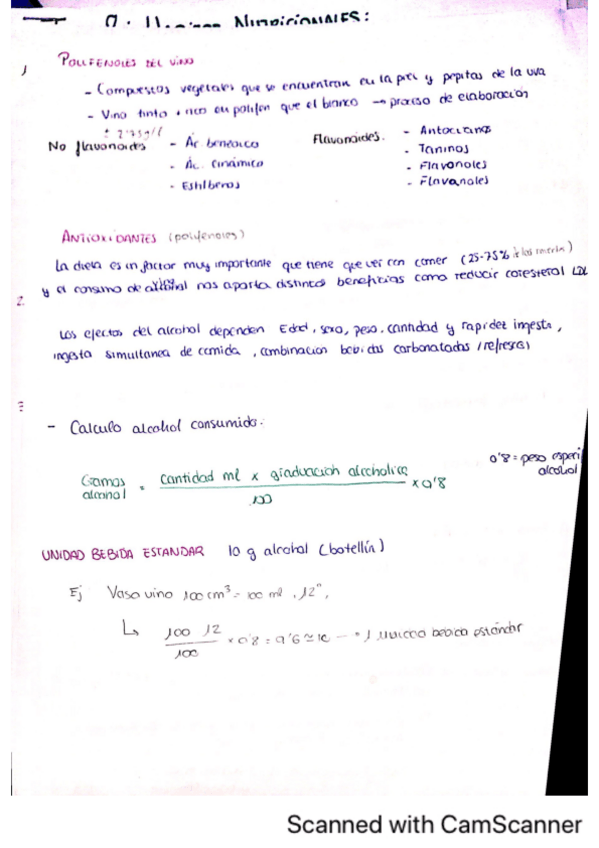 NUTRICIONALES:
POLIFENOLES DEL VINO
- Compuestos vegetales que se encuentran en la piel y pepitas de la uva
- Vino tinto + rico en polifen que el blanco → proceso de elaboración
± 2'75 g/l
No flavonoides - Ác. benzoico
- Ác. cinámico
- Estilberos
Flavonoides. - Antocianos
- Taninos
- Flavonoles
- Flavanoles
ANTIOXIDANTES (polifenoles)
La dieta es un factor muy importante que tiene que ver con cáncer (25-75%
2. y el consumo de nos aporta distintos beneficios como reducir colesterol LDL
Los efectos del alcohol dependen Edad, sexo, peso, cantidad y rapidez ingesta,
ingesta simultanea de comida, combinacion bebidas carbonatadas /refresco)
- Calculo alcohol consumido:
Gramos alcohol = cantidad ml x graduacion alcoholica / 100 x 0'8
0'8 = peso especi
alcohol
UNIDAD BEBIDA ESTANDAR 10 g alcohol (botellín)
Ej Vaso vino 100 cm³ = 100 ml, 12°,
↳ 100 · 12 / 100 x 0'8 = 9'6 ≃ 10 → 1 unidad bebida estándar
Scanned with CamScanner